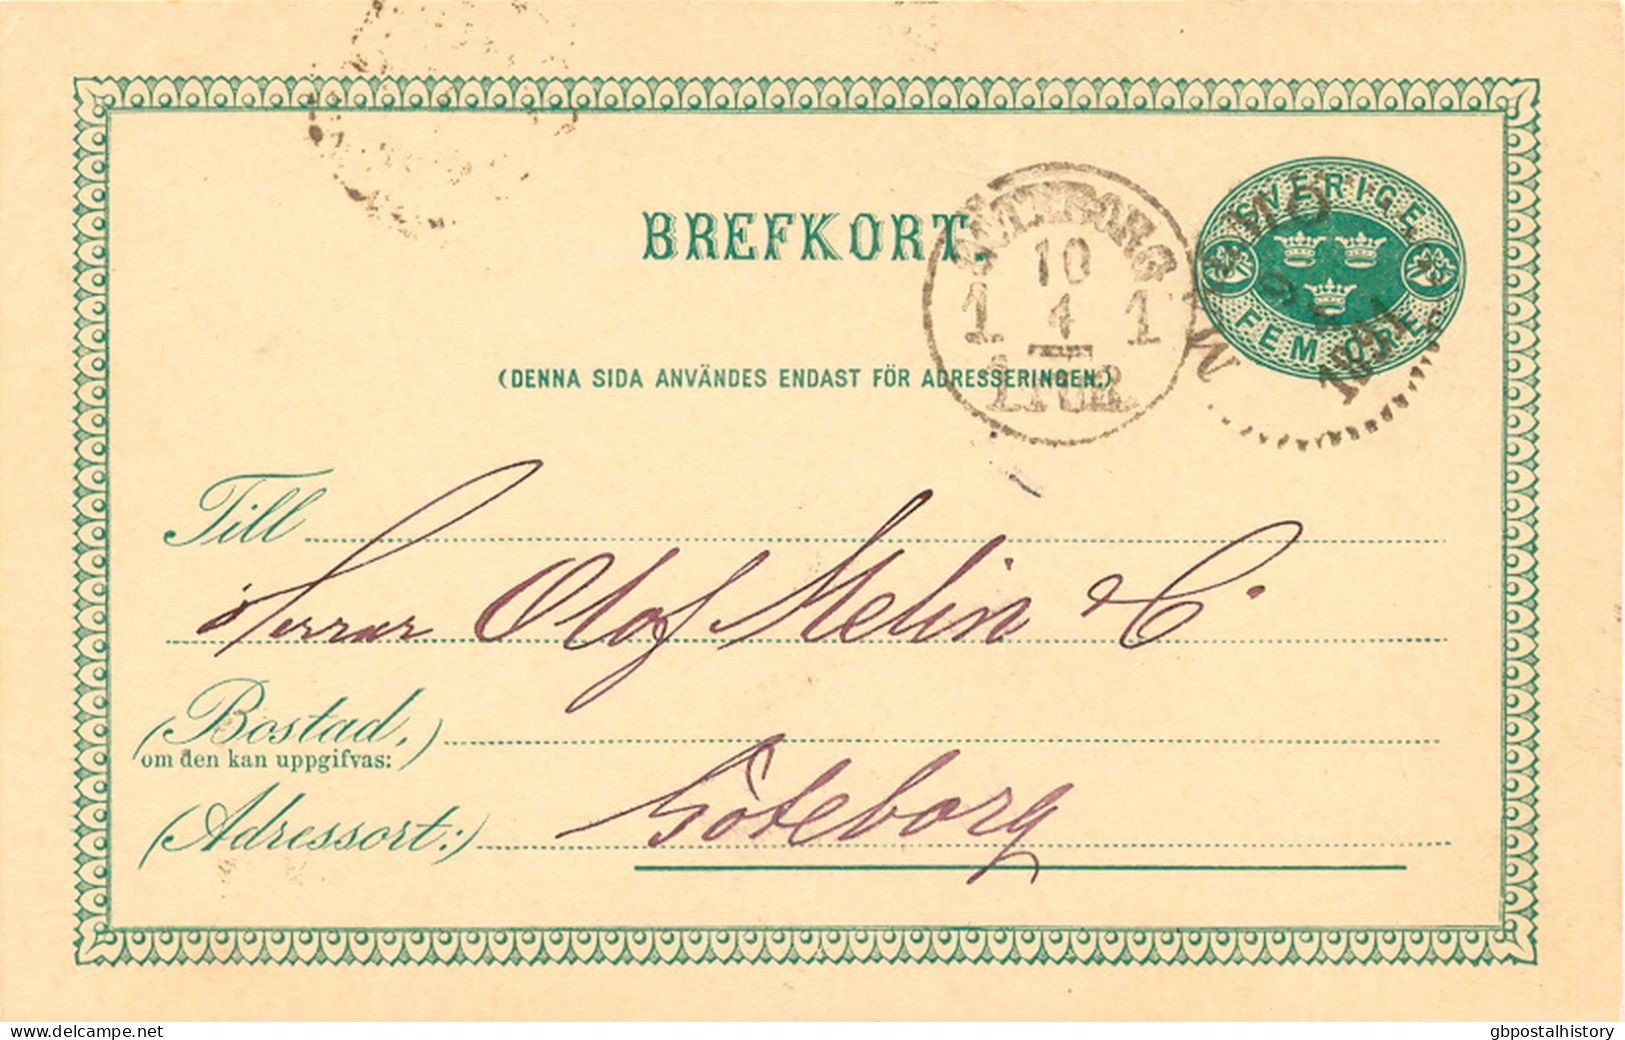 SVERIGE
FEM ÖRE
MALMÖ
1891
BREFKORT.
GÖTEBORG
10
1 4 1
1 TUR.
(DENNA SIDA ANVÄNDES ENDAST FÖR ADRESSERINGEN.)
Till
Herrar Olof Melin & C.
(Bostad,)
om den kan uppgifvas:
(Adressort:) Göteborg
www.delcampe.net
gbpostalhistory